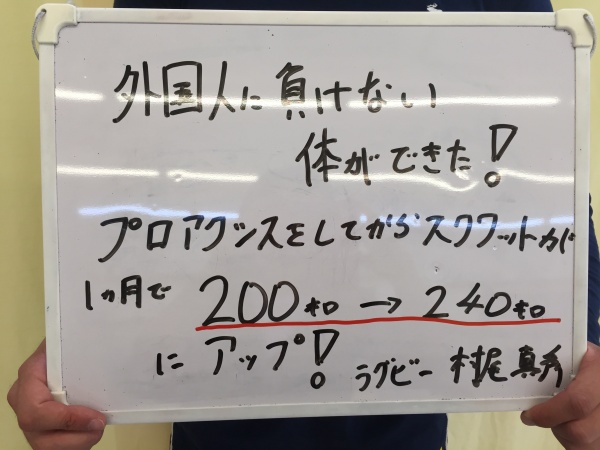 外国人に負けない
体ができた!
プロアクシスをしてからスクワットが
1ヵ月で 200キロ→240キロ
にアップ! ラグビー 梶尾真秀